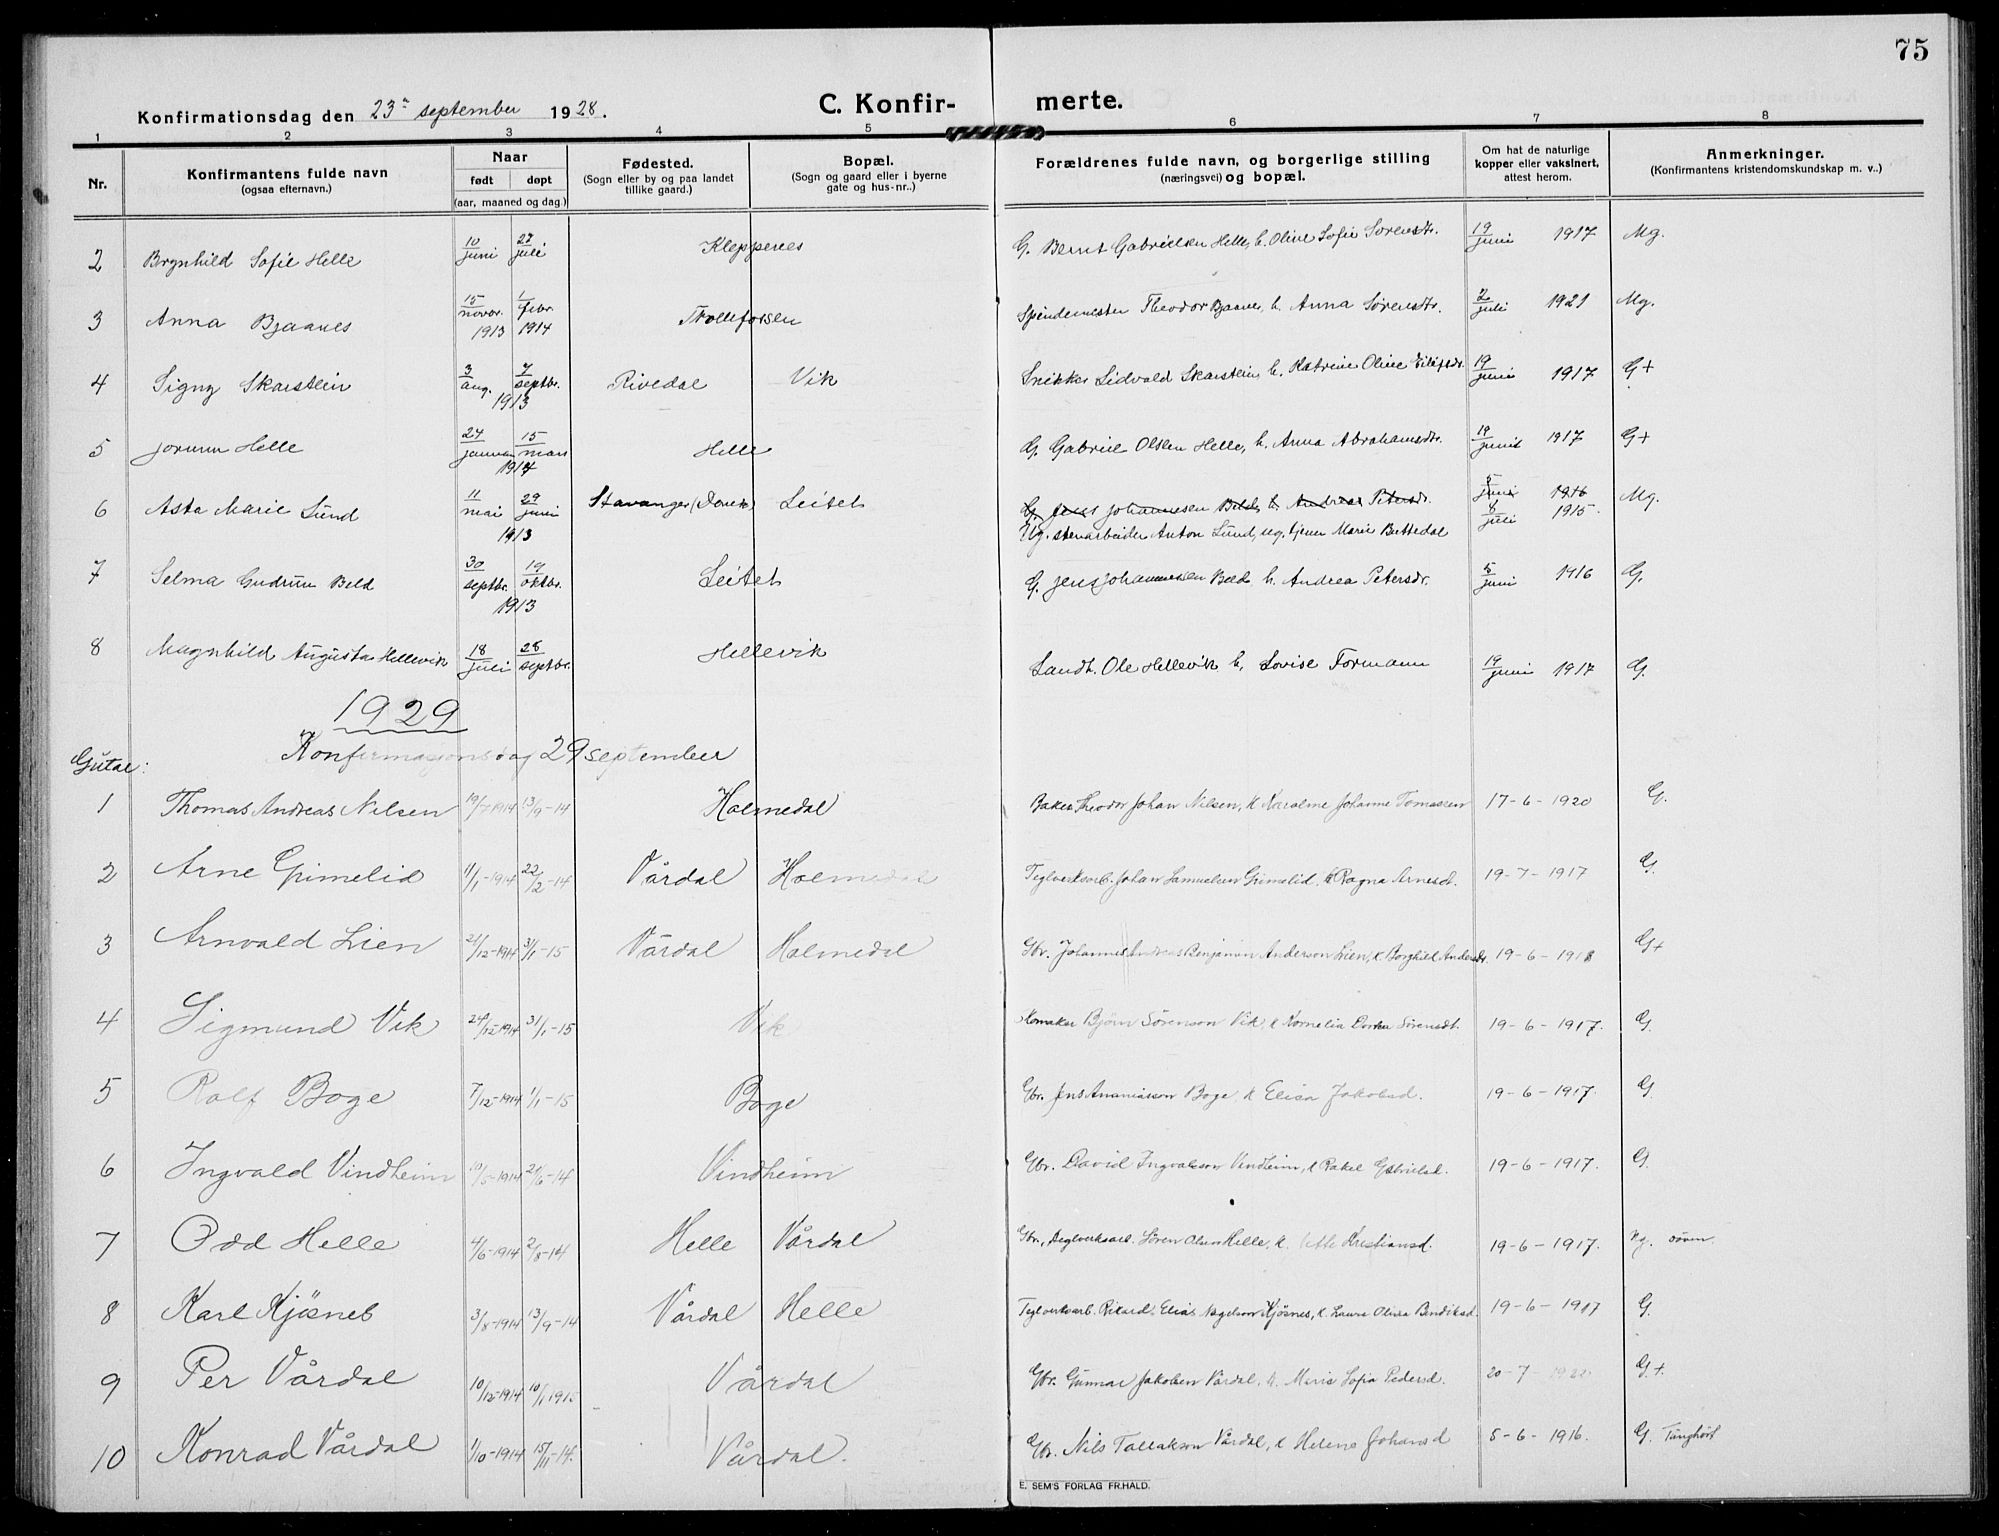 75
Konfirmationsdag den 23de september 1928.
C. Konfir- merte.
1 2 3 4 5 6 7 8
Nr.
Konfirmantens fulde navn
(ogsaa efternavn.)
Naar
født døpt
(aar, maaned og dag.)
Fødested.
(Sogn eller by og paa landet
tillike gaard.)
Bopæl.
(Sogn og gaard eller i byerne
gate og hus-nr..)
Forældrenes fulde navn, og borgerlige stilling
(næringsvei) og bopæl.
Om hat de naturlige
kopper eller vaksinert,
attest herom.
Anmerkninger.
(Konfirmantens kristendomskundskap m. v..)
2 Brynhild Sofie Helle 10/juni 27/juli Kleppenes G. Bernt Gabrielsen Helle, h. Oline Sofie Sørensdtr. 19/juni 1917 Mg.
3 Anna Bjaanes 15/novbr. 1913 1/febr. 1914 Trollefossen Spindemester Theodor Bjaanes, h. Anna Sørensdtr. 2/juli 1921 Mg.
4 Signy Skarstein 3/aug. 7/septbr. 1913 Rivedal Vik Snikker Sidvald Skarstein h. Katrine Oline Eilifsdtr. 19/juni 1917 G+
5 Jorunn Helle 24/januar 15/mars 1914 Helle G. Gabriel Olsen Helle, h. Anna Abrahamsdtr. 19/juni 1917 G+
6 Asta Marie Lund 11/mai 29/juni 1913 Stavanger (Domk) Leitet G. Jens Johannesen Beld, h. Andrea Petersdr. 5/juni 1916 Mg.
8/juli 1915.
Ug. stenarbeider Anton Lund, ug. tjener Marie Buttedal
7 Selma Gudrun Beld 30/septbr. 19/oktbr. 1913 Leitet G. Jens Johannesen Beld h. Andrea Petersdr. 5/juni 1916 G.
8 Magnhild Augusta Hellevik 18/juli 28/septbr. Hellevik Landh. Ole Hellevik h. Lovise Formann 19/juni 1917 G.
1929
Konfirmasjonsdag 29 september
Gutar:
1 Thomas Andreas Nilsen 19/7 1914 13/9-14 Holmedal Baker Theodor Johan Nilsen, k Karoline Johanne Tomassen 17-6-1920 G.
2 Arne Grimelid 11/1-1914 22/2-14 Vårdal Holmedal Teglverksarb. Johan Samuelsen Grimelid, k Ragna Arnesdt. 19-7-1917 G.
3 Arnvald Lien 21/12-1914 31/1-15 Vårdal Holmedal Gbr. Johannes Andreas Benjamin Anderson Lien, k Borghild Andersdr. 19-6-1918 G+
4 Sigmund Vik 24/12-1914 31/1-15 Vik Bjørn Sørenson Vik, k Kornelia Dorthea Sørensdt. 19-6-1917. G.
5 Rolf Boge 7/12-1914 1/1-15 Boge Gbr. Jens Ananiasson Boge, k Elisa Jakobsd. 19-6-1917. G.
6 Ingvald Vindheim 10/5-1914 21/6-14 Vindheim Gbr. David Ingvalsson Vindheim, k Rakel Gabrielsd. 19-6-1917. G.
7 Odd Helle 4/6-1914 2/8-14 Helle Vårdal Gbr., Teglverksarb. Søren Olsen Helle, k. Kristiansd. 19-6-1917. Ng.
8 Karl Kjøsnes 3/8-1914 13/9-14 Vårdal Helle Teglverksarb. Rikard Elias Kjøsnes, k. Laura Olina Bendiksd. 19-6-1917 G.
9 Per Vårdal 10/12-1914 10/1 1915 Vårdal Gbr. Gunnar Jakobsen Vårdal, k. Marie Sofia Pedersd. 20-7-1922 G+.
10 Konrad Vårdal 1/10-1914 15/11-14. Vårdal. Gbr. Nils Tollakson Vårdal, k Helene Johansd 5-6-1916. G. Tunghørt
E. SEM'S FORLAG FR.HALD.